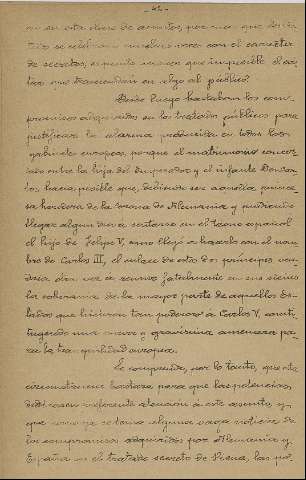 — 41 —
en en esta clase de asuntos, por más que los tra-
tados se celebraran muchas veces con el carácter
de secretos, siquiera nunca fue imposible el sos-
que trascendiera en algo al público.
Desde luego bastaban los com-
promisos adquiridos en los tratados públicos para
justificar la alarma producida en todos los
gabinetes europeos, porque el matrimonio concer-
tado entre la hija del Emperador y el infante Don Car-
los, hacía posible que, debiendo ser aquélla, prime-
ra heredera de la corona de Alemania y pudiendo
llegar algún día a sentarse en el trono español
el hijo de Felipe V, como llegó a hacerlo con el nom-
bre de Carlos III, el enlace de estos dos príncipes ven-
dría a reunir fatalmente en sus sienes
la soberanía de la mayor parte de aquellos Es-
tados que hicieron tan poderoso á Carlos V, consti-
tuyendo una nueva y gravísima amenaza pa-
ra la tranquilidad europea.
Se comprende, por lo tanto, que esta
circunstancia bastara para que las potencias
dedicasen preferente atención á este asunto, y
que como ya se tenía alguna vaga noticia de
los compromisos adquiridos por Alemania y
España en el tratado secreto de Viena, las po-